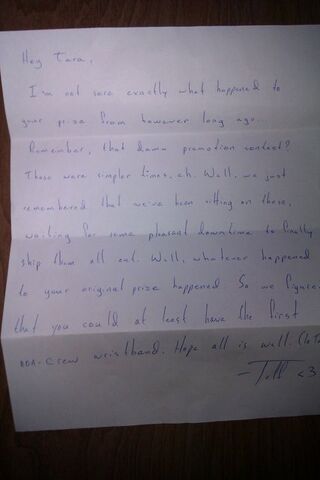 Hey Tara,
I'm not sure exactly what happened to
your prize from however long ago.
Remember, that damn promotion contest?
Those were simpler times, eh. Well, we just
remembered that we've been sitting on these,
waiting for some pleasant downtime to finally
ship them all out. Well, whatever happened
to your original prize happened. So we figure
that you could at least have the first
crew wristband. Hope all is well.